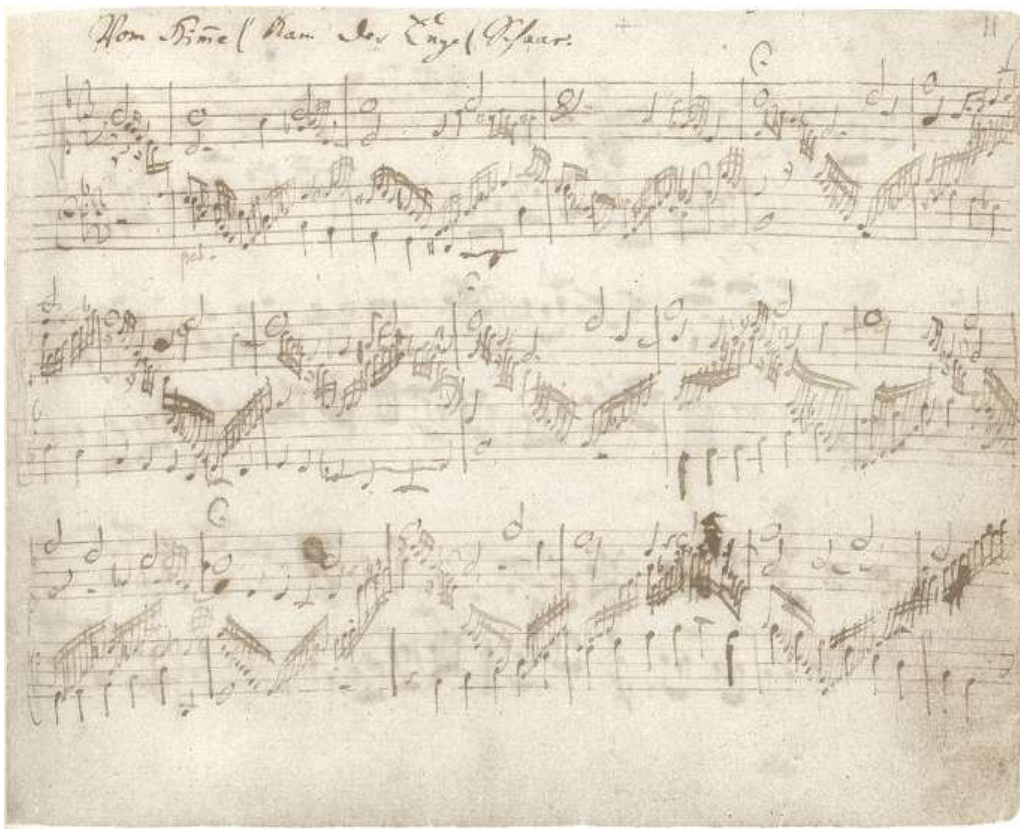 Vom Him̄el Kam der Engel Schaar.
11
ped.